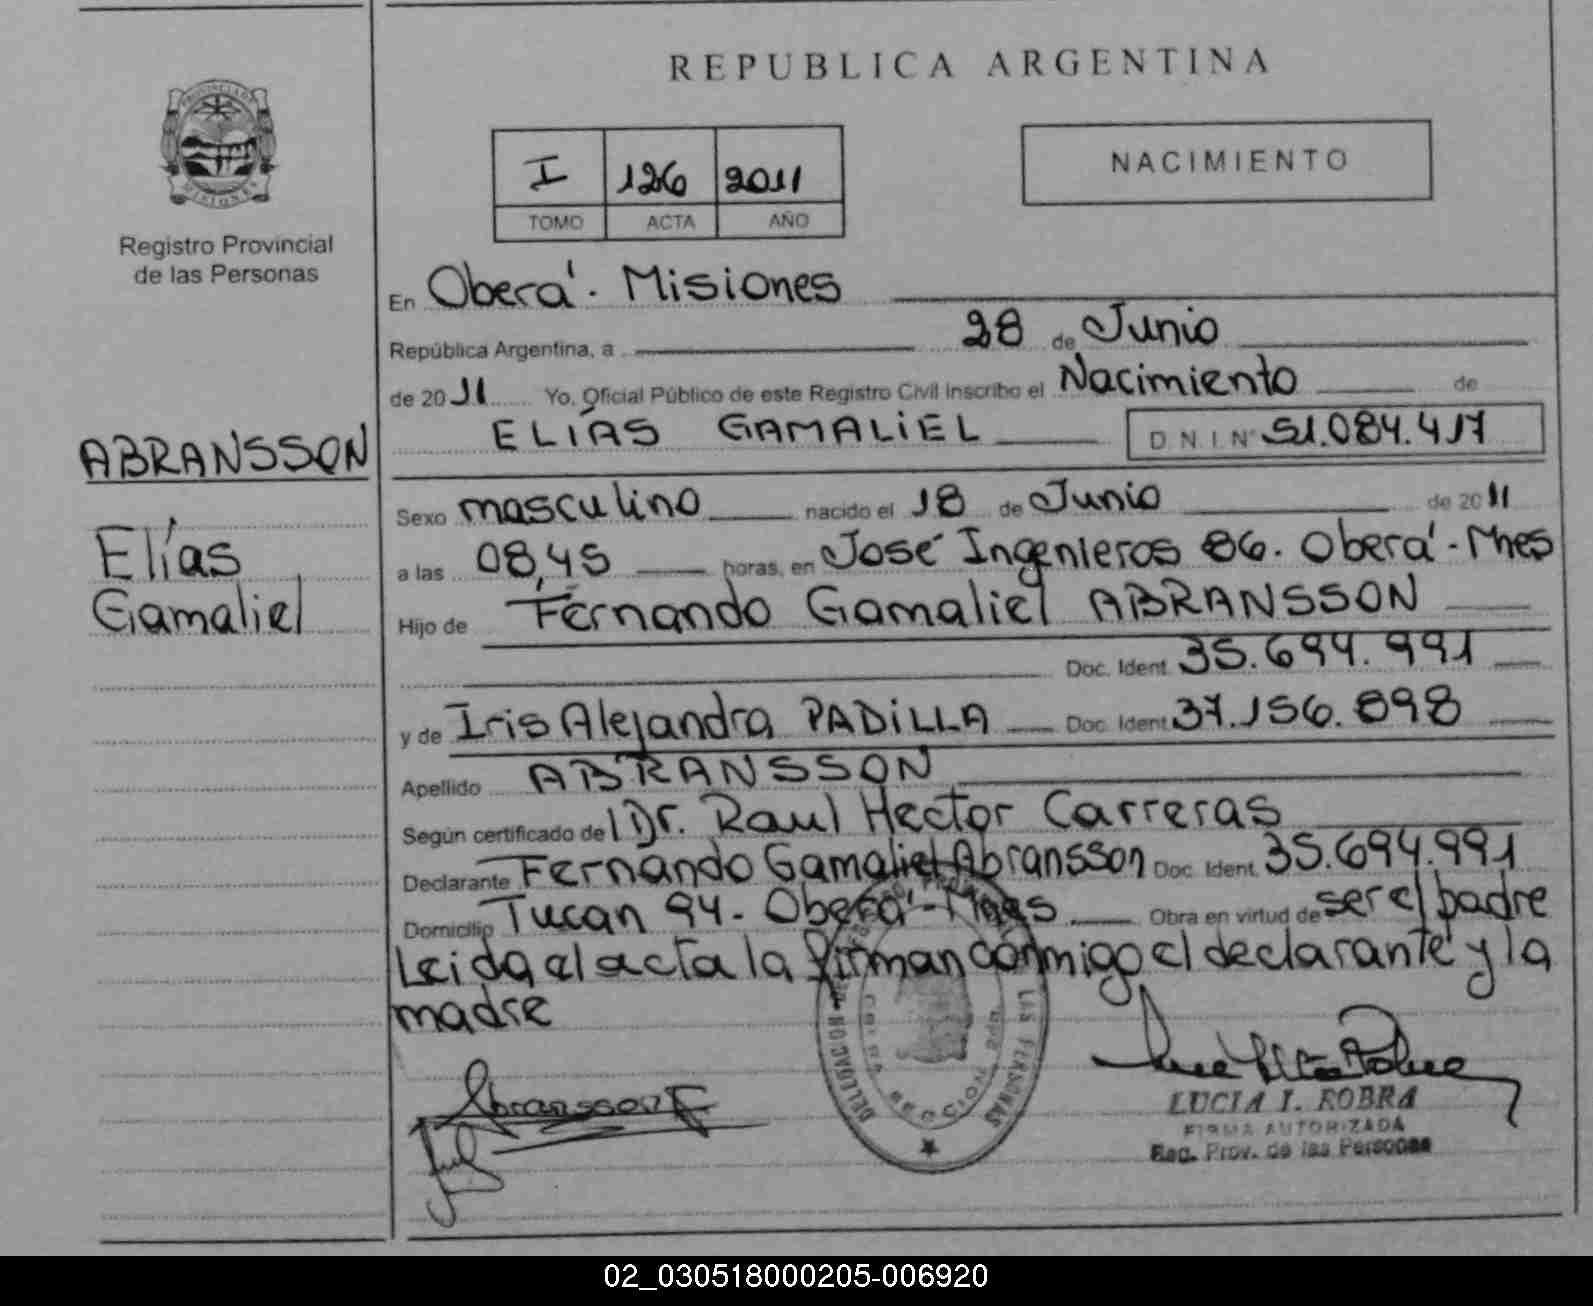 REPUBLICA ARGENTINA
I 126 2011
TOMO ACTA AÑO
NACIMIENTO
PROVINCIA DE
MISIONES
Registro Provincial
de las Personas
ABRANSSON
Elías
Gamaliel
En Oberá. Misiones
República Argentina, a 28 de Junio
de 2011 Yo, Oficial Público de este Registro Civil inscribo el Nacimiento de
ELÍAS GAMALIEL D.N.I.Nº 51.084.417
Sexo masculino nacido el 18 de Junio de 2011
a las 08,45 horas, en José Ingenieros 86. Oberá-Mnes
Hijo de Fernando Gamaliel ABRANSSON
Doc. Ident. 35.694.991
y de Iris Alejandra PADILLA Doc. Ident. 37.156.898
Apellido ABRANSSON
Según certificado de l Dr. Raul Hector Carreras
Declarante Fernando Gamaliel Abransson Doc. Ident. 35.694.991
Domicilio Tucan 94. Oberá-Mnes Obra en virtud de ser el padre
Leida el acta la firman conmigo el declarante y la
madre
Abransson F
DELEGACION
LAS PERSONAS
SECCION
LUCIA I. ROBRA
FIRMA AUTORIZADA
Reg. Prov. de las Personas
02_030518000205-006920